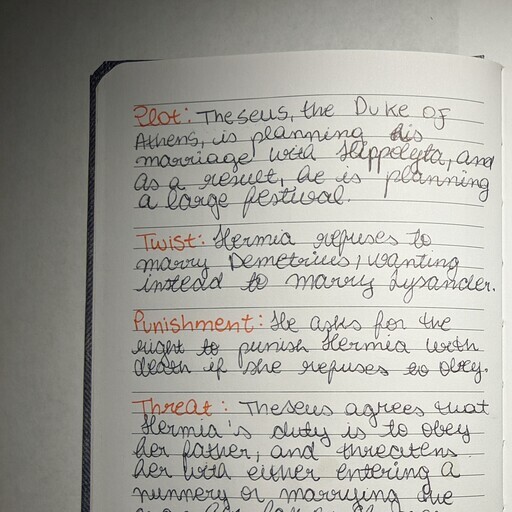 Plot: Theseus, the Duke of
Athens, is planning his
marriage with Hippolyta, and
as a result, he is planning
a large festival.
Twist: Hermia refuses to
marry Demetrius, wanting
instead to marry Lysander.
Punishment: He asks for the
right to punish Hermia with
death if she refuses to obey.
Threat: Theseus agrees that
Hermia's duty is to obey
her father, and threatens
her with either entering a
nunnery or, marrying the